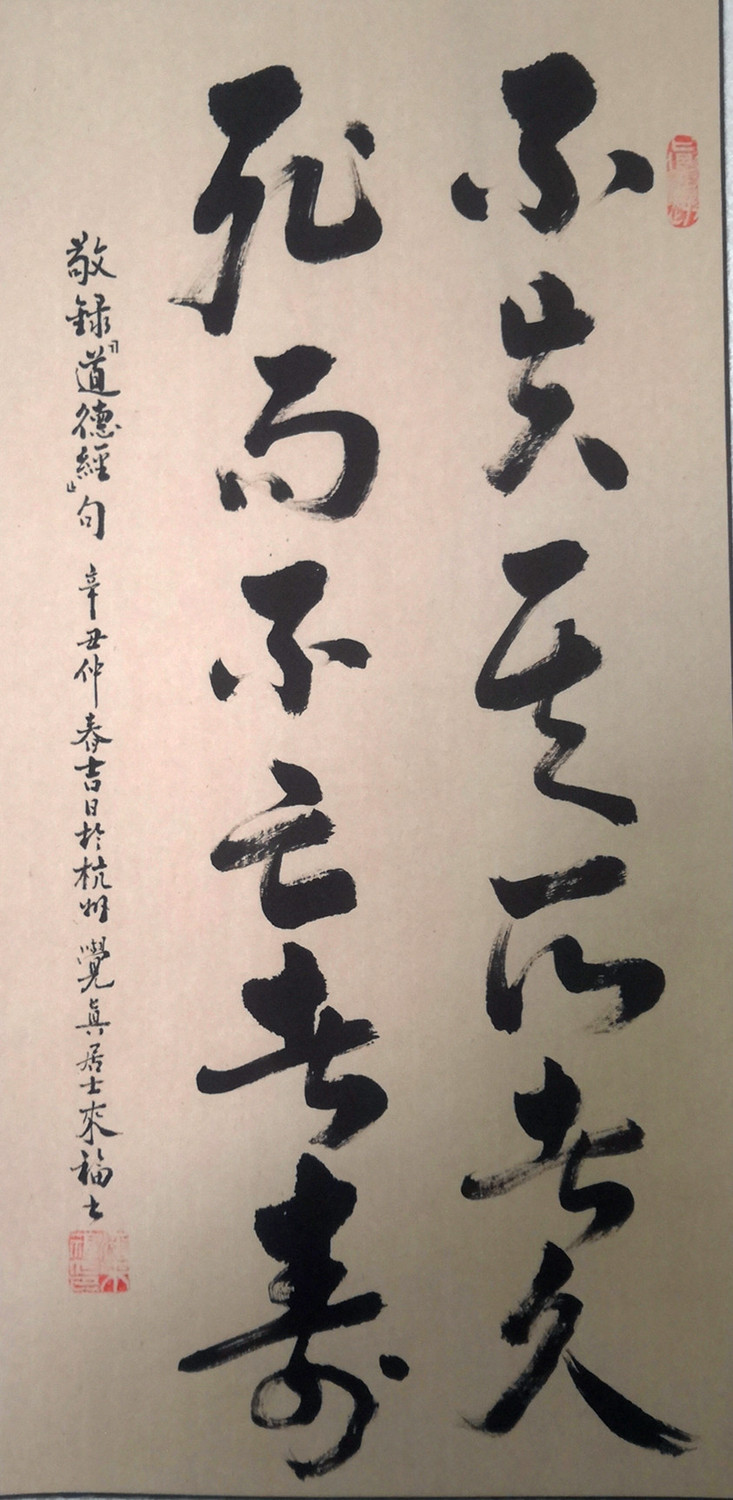 不失其所者久
死而不亡者壽
敬録『道德經』句 辛丑仲春吉日於杭州 覺真居士來福士